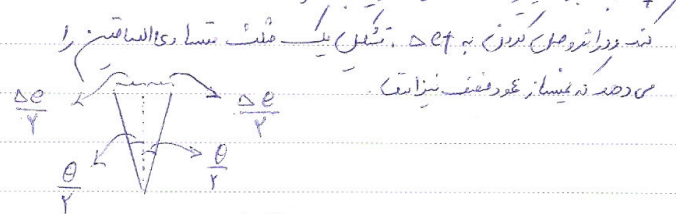 کند و در اثر وصل کردن به Δef. تشکیل یک مثلث متساوی الساقین را
می دهد که نیمساز عمود منصف نیز است.
Δe/۲ Δe/۲
θ/۲ θ/۲